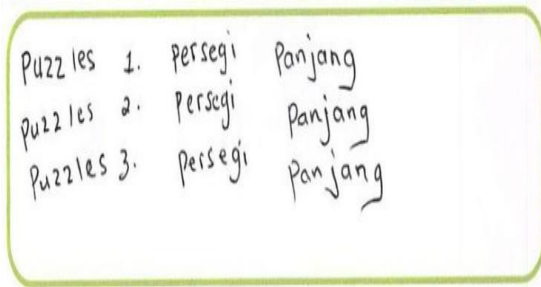 Puzzles 1. persegi Panjang
Puzzles 2. Persegi Panjang
Puzzles 3. persegi Panjang